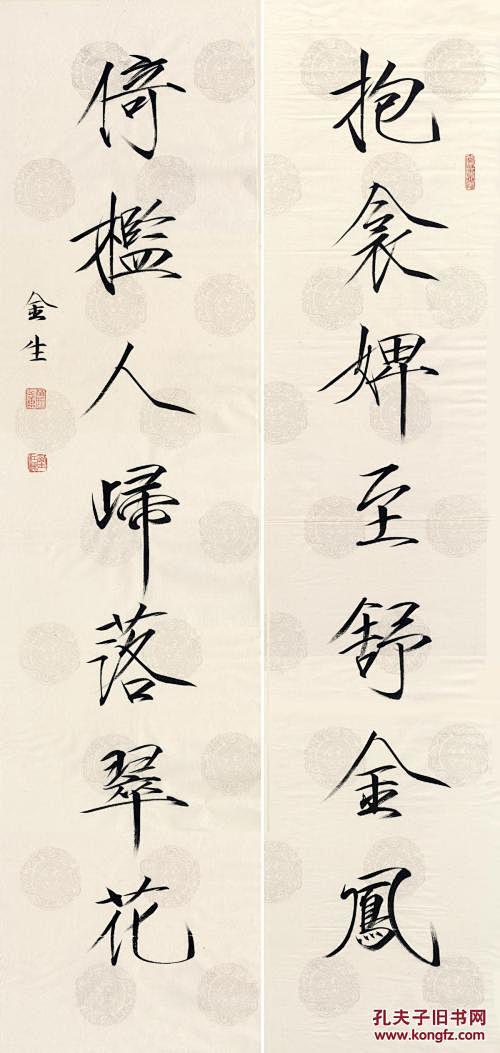 抱衾婢至舒金鳳
倚檻人歸落翠花
金生
孔夫子旧书网
www.kongfz.com